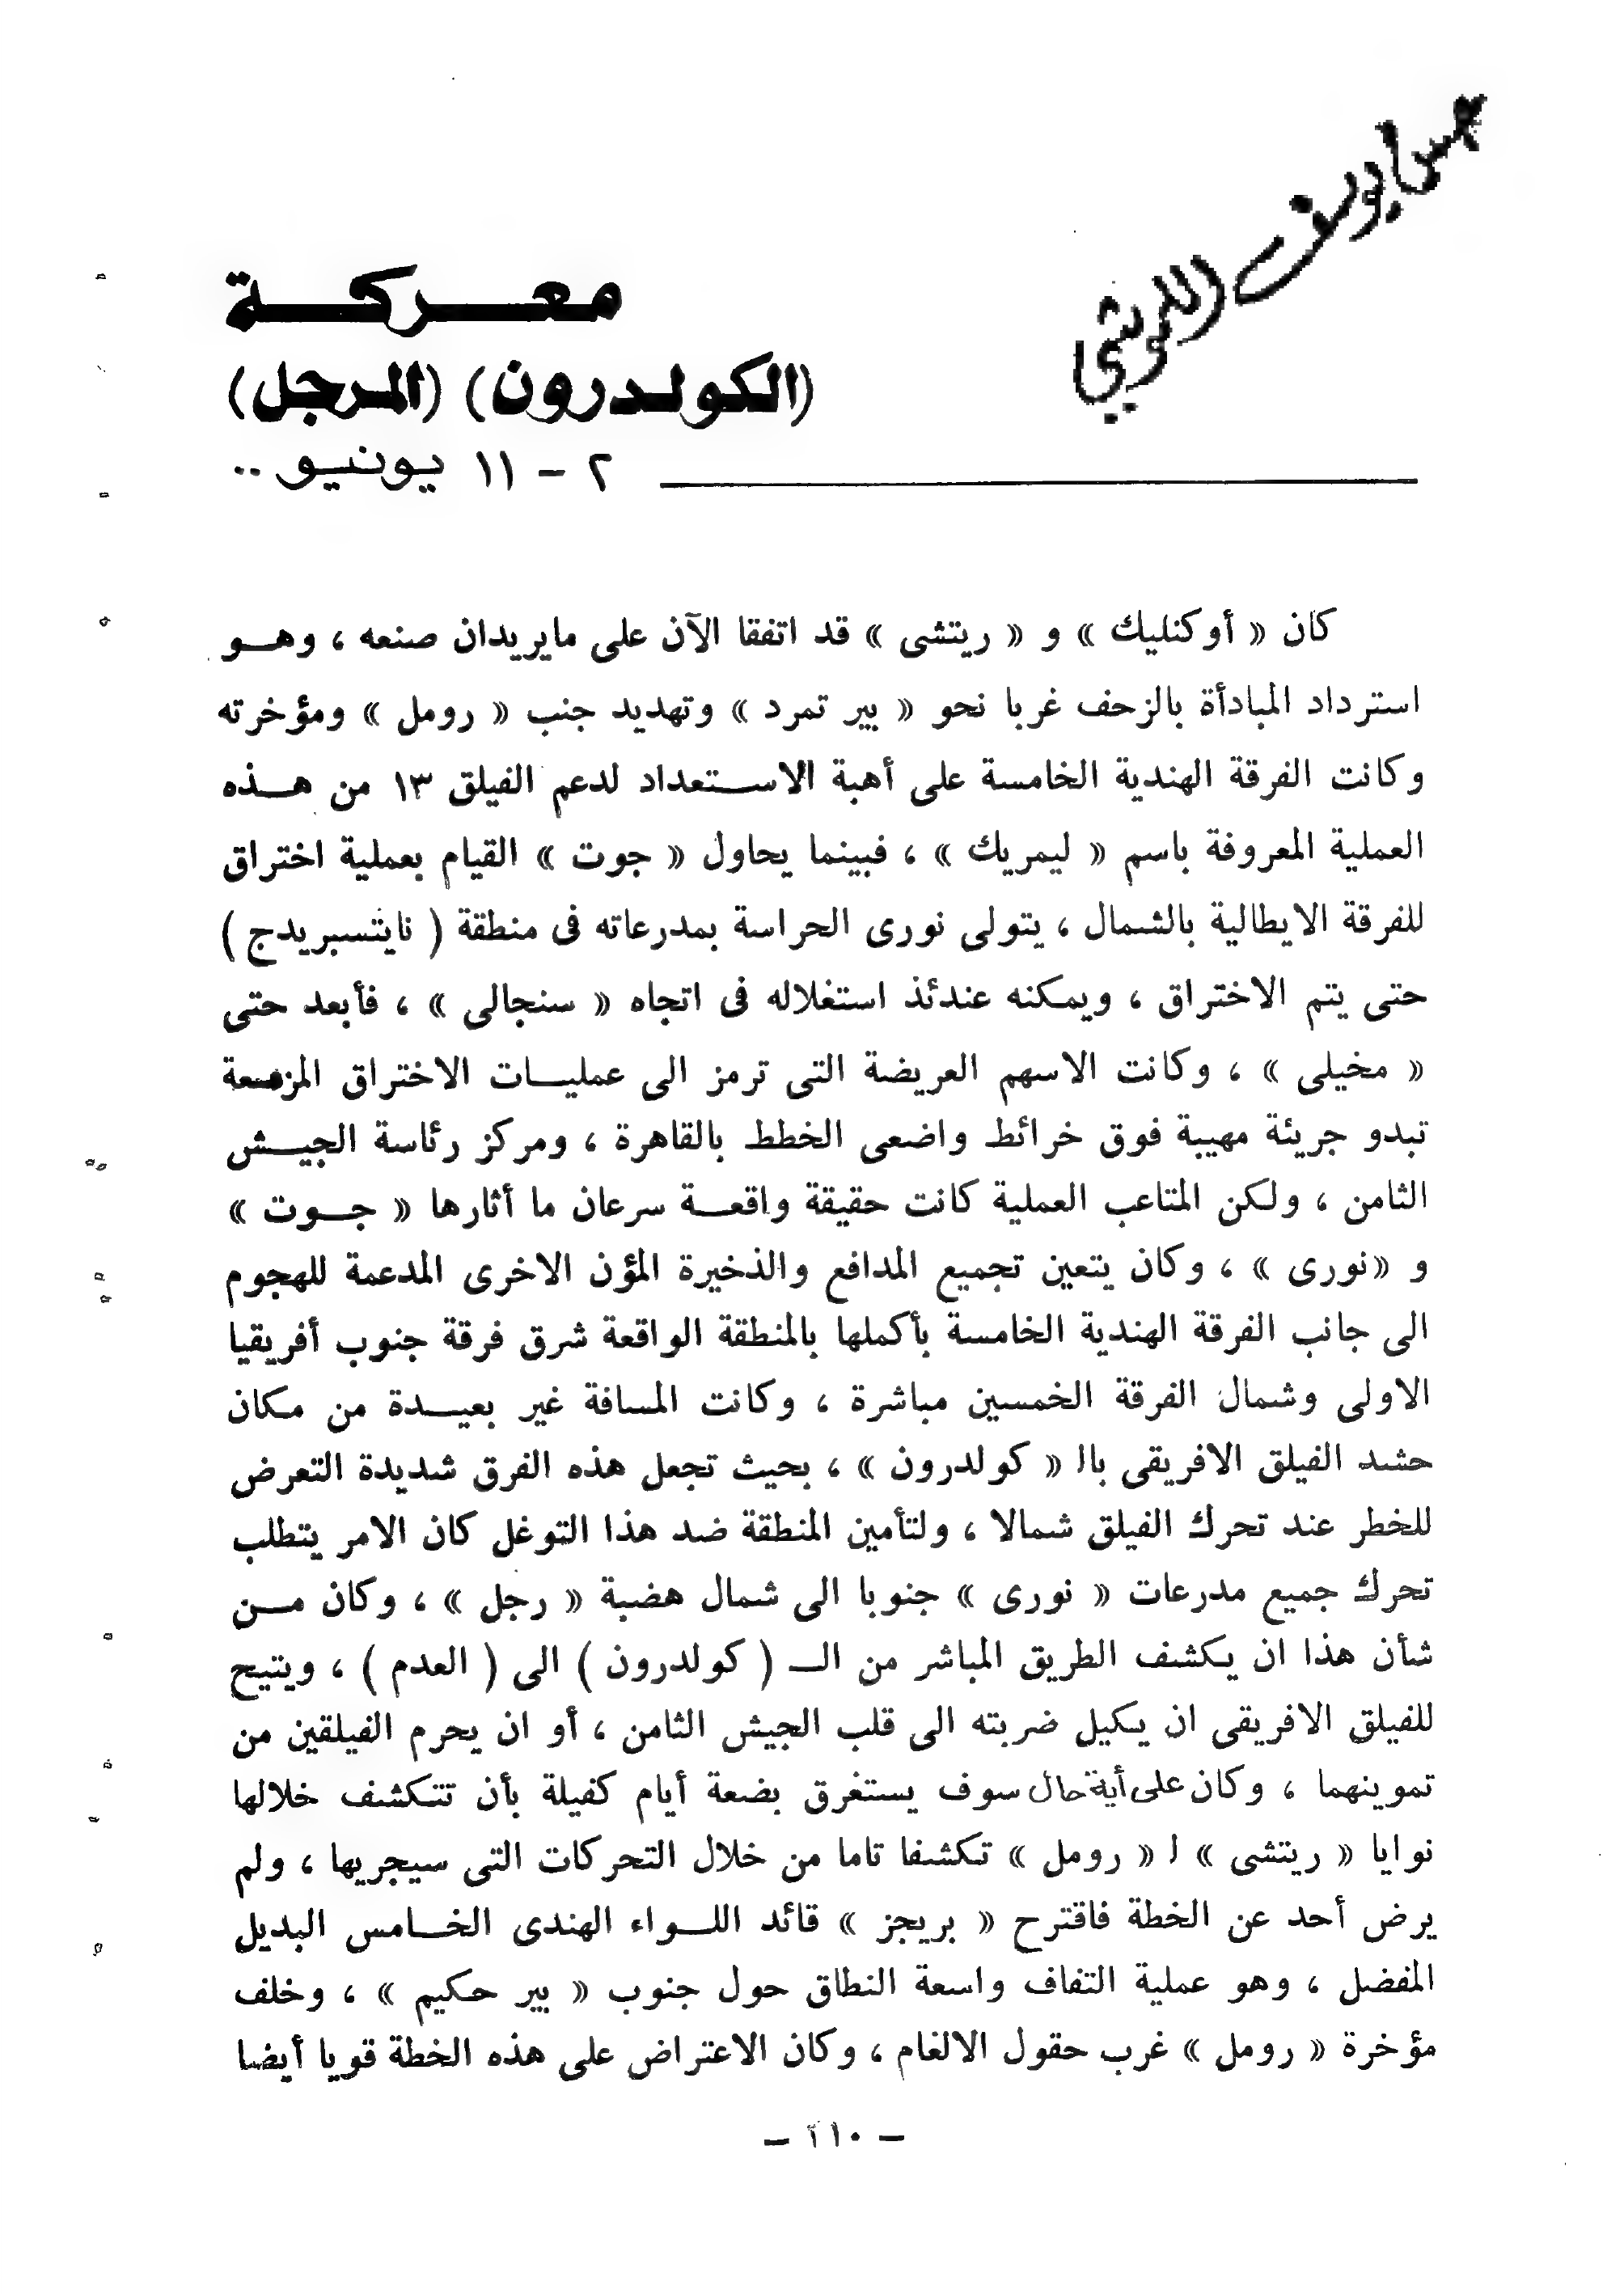 حسن يوسف اللويشي
معركة
(الكولدرون) (المرجل)
٢ - ١١ يونيو ..
كان « أوكنليك » و « ريتشى » قد اتفقا الآن على مايريدان صنعه ، وهو
استرداد المبادأة بالزحف غربا نحو « بير تمرد » وتهديد جنب « رومل » ومؤخرته
وكانت الفرقة الهندية الخامسة على أهبة الاستعداد لدعم الفيلق ١٣ من هذه
العملية المعروفة باسم « ليمريك » ، فبينما يحاول « جوت » القيام بعملية اختراق
للفرقة الايطالية بالشمال ، يتولى نورى الحراسة بمدرعاته فى منطقة ( نايتسبريدج )
حتى يتم الاختراق ، ويمكنه عندئذ استغلاله فى اتجاه « سنجالى » ، فأبعد حتى
« مخيلى » ، وكانت الاسهم العريضة التى ترمز الى عمليات الاختراق المزمعة
تبدو جريئة مهيبة فوق خرائط واضعى الخطط بالقاهرة ، ومركز رئاسة الجيش
الثامن ، ولكن المتاعب العملية كانت حقيقة واقعة سرعان ما أثارها « جوت »
و «نورى » ، وكان يتعين تجميع المدافع والذخيرة المؤن الاخرى المدعمة للهجوم
الى جانب الفرقة الهندية الخامسة بأكملها بالمنطقة الواقعة شرق فرقة جنوب أفريقيا
الاولى وشمال الفرقة الخمسين مباشرة ، وكانت المسافة غير بعيدة من مكان
حشد الفيلق الافريقى بال « كولدرون » ، بحيث تجعل هذه الفرق شديدة التعرض
للخطر عند تحرك الفيلق شمالا ، ولتأمين المنطقة ضد هذا التوغل كان الامر يتطلب
تحرك جميع مدرعات « نورى » جنوبا الى شمال هضبة « رجل » ، وكان من
شأن هذا ان يكشف الطريق المباشر من الـ ( كولدرون ) الى ( العدم ) ، ويتيح
للفيلق الافريقى ان يكيل ضربته الى قلب الجيش الثامن ، أو ان يحرم الفيلقين من
تموينهما ، وكان على أية حال سوف يستغرق بضعة أيام كفيلة بأن تتكشف خلالها
نوايا « ريتشى » ل « رومل » تكشفا تاما من خلال التحركات التى سيجريها ، ولم
يرض أحد عن الخطة فاقترح « بريجز » قائد اللواء الهندى الخامس البديل
المفضل ، وهو عملية التفاف واسعة النطاق حول جنوب « بير حكيم » ، وخلف
مؤخرة « رومل » غرب حقول الالغام ، وكان الاعتراض على هذه الخطة قويا أيضا
– ٢١٠ –